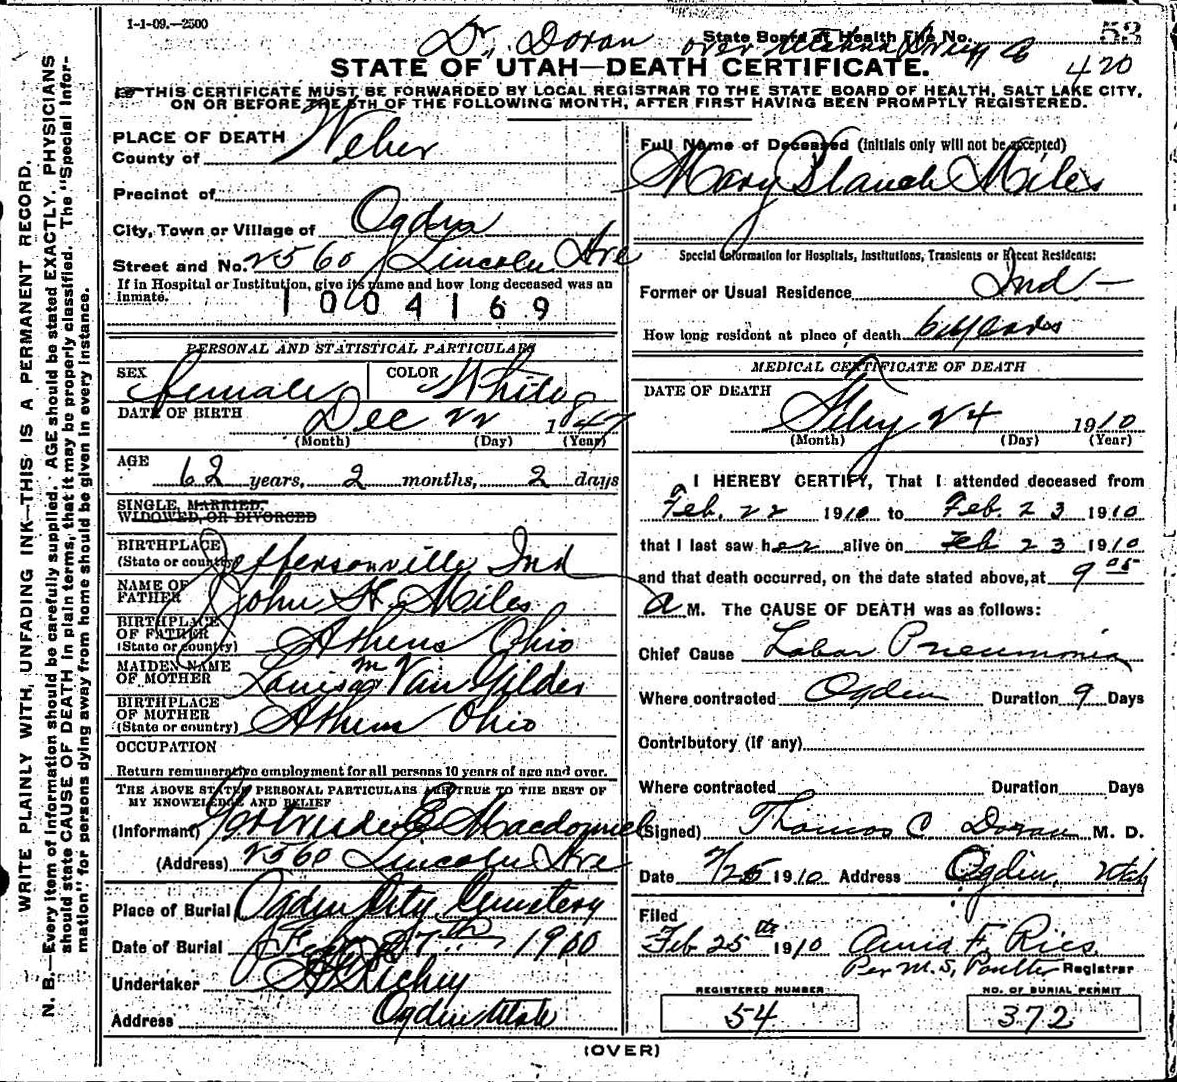 1-1-09.—2500
Dr. Doran over Utahna Drug Co
State Board of Health File No. 53
420
STATE OF UTAH—DEATH CERTIFICATE.
THIS CERTIFICATE MUST BE FORWARDED BY LOCAL REGISTRAR TO THE STATE BOARD OF HEALTH, SALT LAKE CITY,
ON OR BEFORE THE 5TH OF THE FOLLOWING MONTH, AFTER FIRST HAVING BEEN PROMPTLY REGISTERED.
WRITE PLAINLY WITH UNFADING INK—THIS IS A PERMANENT RECORD.
N. B.—Every item of information should be carefully supplied. AGE should be stated EXACTLY. PHYSICIANS
should state CAUSE OF DEATH in plain terms, that it may be properly classified. The "Special Infor-
mation" for persons dying away from home should be given in every instance.
PLACE OF DEATH
County of Weber
Precinct of
City, Town or Village of Ogden
Street and No. 2560 Lincoln Ave
If in Hospital or Institution, give its name and how long deceased was an
inmate.
1004169
PERSONAL AND STATISTICAL PARTICULARS
SEX female COLOR White
DATE OF BIRTH Dec 22 1847
(Month) (Day) (Year)
AGE 62 years, 2 months, 2 days
SINGLE, MARRIED,
WIDOWED, OR DIVORCED
BIRTHPLACE
(State or country) Jeffersonville Ind
NAME OF
FATHER John H. Miles
BIRTHPLACE
OF FATHER
(State or country) Athens Ohio
MAIDEN NAME
OF MOTHER Louisa m Van Gilder
BIRTHPLACE
OF MOTHER
(State or country) Athens Ohio
OCCUPATION
Return remunerative employment for all persons 10 years of age and over.
THE ABOVE STATED PERSONAL PARTICULARS ARE TRUE TO THE BEST OF
MY KNOWLEDGE AND BELIEF
(Informant) Gertrude E Macdonnel
(Address) 2560 Lincoln Ave
Place of Burial Ogden City Cemetery
Date of Burial Feby 27th 1910
Undertaker Richey
Address Ogden Utah
Full Name of Deceased (initials only will not be accepted)
Mary Blanch Miles
Special Information for Hospitals, Institutions, Transients or Recent Residents:
Former or Usual Residence Ind —
How long resident at place of death 6 years
MEDICAL CERTIFICATE OF DEATH
DATE OF DEATH
Feby 24 1910
(Month) (Day) (Year)
I HEREBY CERTIFY, That I attended deceased from
Feb. 22 1910 to Feb. 23 1910
that I last saw her alive on Feb 23 1910
and that death occurred, on the date stated above, at 9 05
A M. The CAUSE OF DEATH was as follows:
Chief Cause Lobar Pneumonia
Where contracted Ogden Duration 9 Days
Contributory (if any)
Where contracted Duration Days
(Signed) Thomas C. Doran M. D.
Date 2/25 1910 Address Ogden, Utah
Filed
Feb 25th 1910 Anna F. Ries.
Per M. S. Poulter Registrar
REGISTERED NUMBER
54
NO. OF BURIAL PERMIT
372
(OVER)